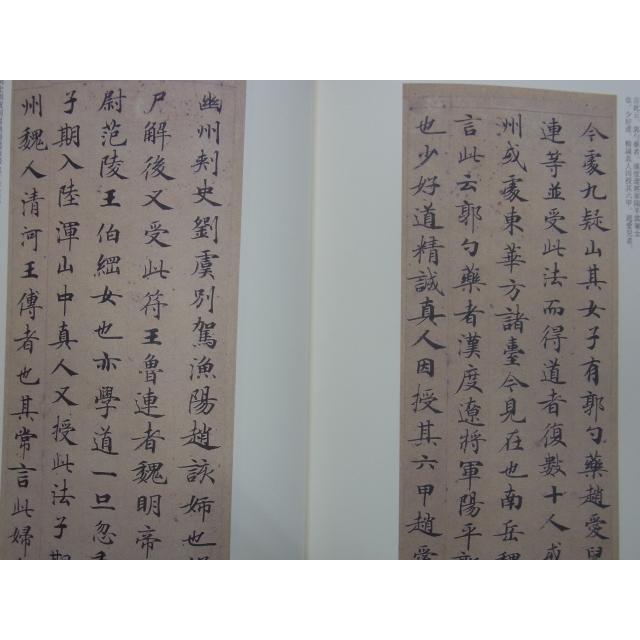 今處九疑山其女子有郭勺藥趙愛兒
連等並受此法而得道者復數十人或
州或處東華方諸臺今見在也南岳魏
言此云郭勺藥者漢度遼將軍陽平郭
也少好道精誠真人因授其六甲趙愛
幽州刺史劉虞別駕漁陽趙該姊也
尸解後又受此符王魯連者魏明帝
尉范陵王伯綱女也亦學道一旦忽
子期入陸渾山中真人又授此法子期
州魏人清河王傅者也其常言此婦